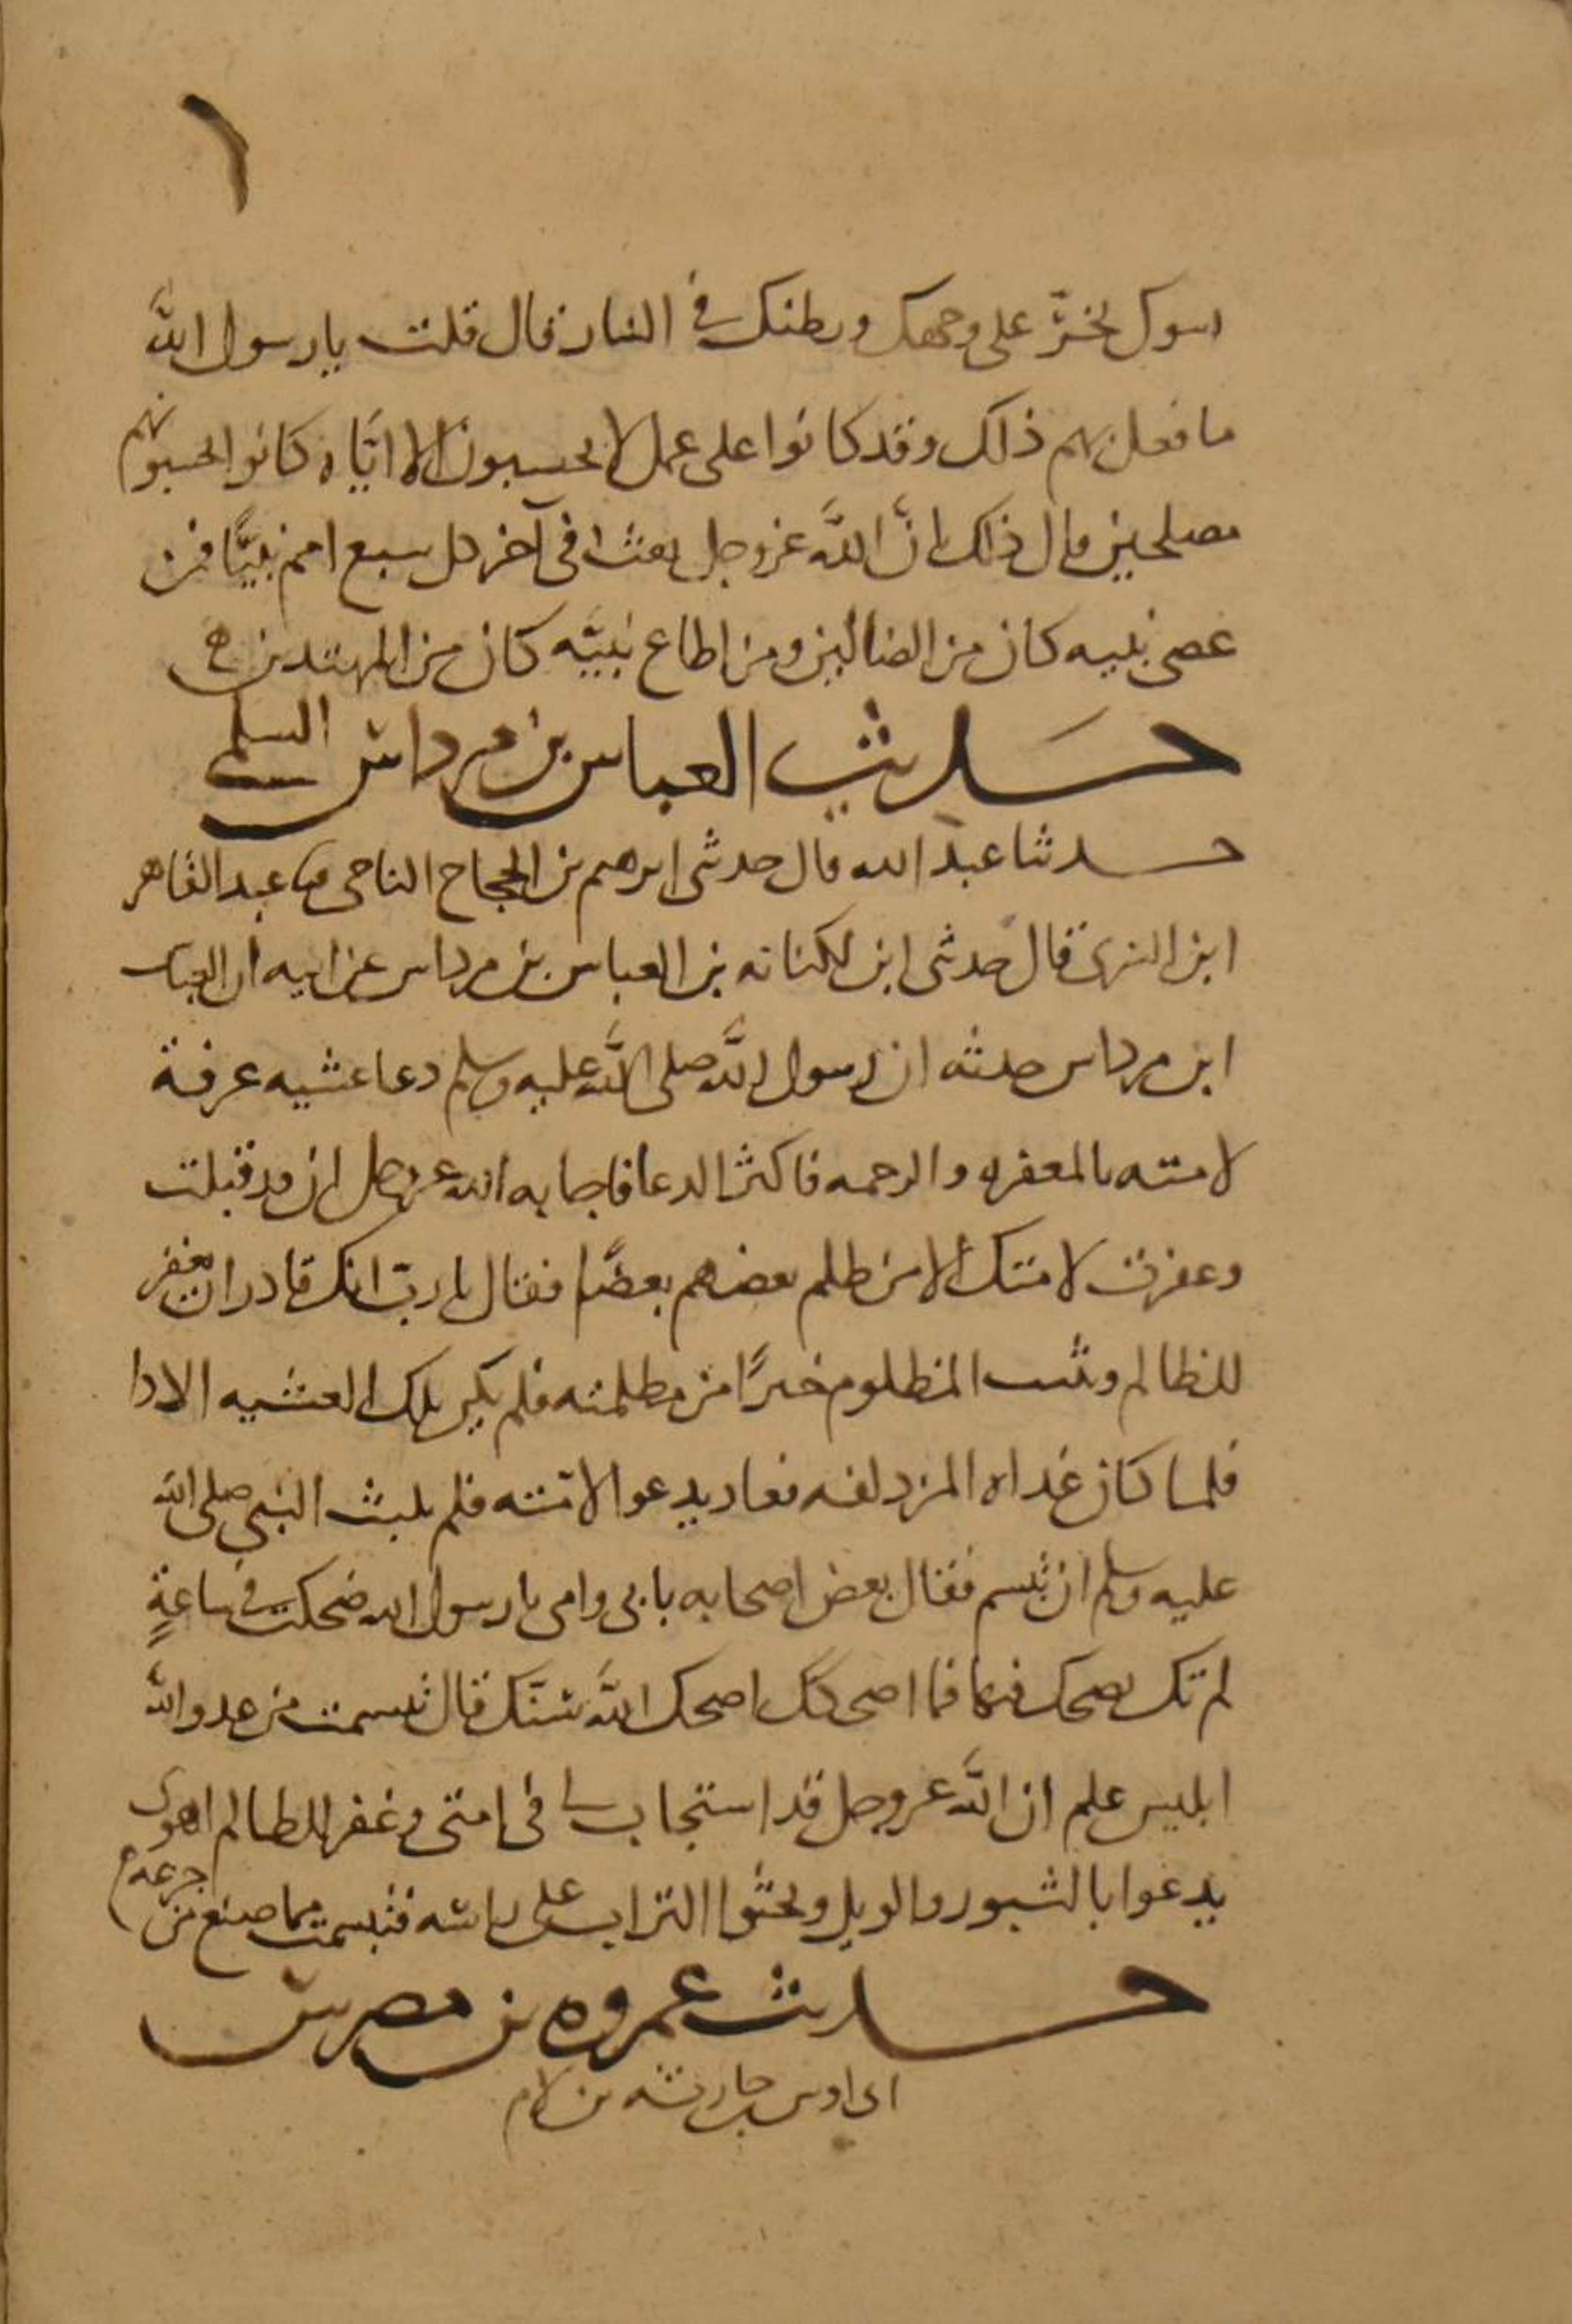 ١
اسوك تخرّ على وجهك وبطنك في النار قال قلت يا رسول الله
ما فعل بهم ذلك وقد كانوا على عمل لا يحسبون الا اياه كانوا يحسبونهم
مصلحين قال ذلك انّ الله عز وجل بعث في آخر كل سبع امم نبيًّا فمن
عصى نبيه كان من الضالين ومن اطاع نبيّه كان من المهتدين ه
حديث العباس بن مرداس السلمي
حدثنا عبد الله قال حدثني ابرهيم بن الحجاج الناجي ثنا عبد القاهر
ابن السري قال حدثني ابن لكنانه بن العباس بن مرداس عن ابيه ان العباس
ابن مرداس حدثه ان رسول الله صلى الله عليه وسلم دعا عشيه عرفة
لامته بالمغفره والرحمه فاكثر الدعا فاجابه الله عز وجل ان قد قبلت
وغفرت لامتك الا من ظلم بعضهم بعضًا فقال يا ربّ انك قادر ان تغفر
للظالم وتثيب المظلوم خيرًا من مظلمته فلم يكن تلك العشيه الا ذا
فلما كان غداه المزدلفه فعاد يدعوا لامّته فلم يلبث النبي صلى الله
عليه وسلم ان تبسم فقال بعض اصحابه بابي وامي يا رسول الله ضحكت في ساعةٍ
لم تك تضحك فيها فما اضحكك اضحك الله سنّك قال تبسمت من عدو الله
ابليس علم ان الله عز وجل قد استجاب لي في امتي وغفر للظالم اهوى
يدعوا بالثبور والويل ويحثوا التراب على راسه فتبسمت مما صنع من جزعه
حديث عروه بن مضرس
ابن اوس بن حارثه بن لام